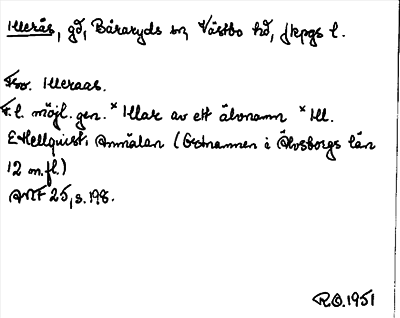 Illerås, gd, Bäraryds sn, Västbo hd, Jkpgs l.
Fno. Illeraas.
F.l. möjl. gen. *Illar av ett älvnamn *Ill.
E Hellquist, Anmälan (Ortnamnen i Älvsborgs län
12 m.fl.)
ANF 25, s. 198.
R.O. 1951